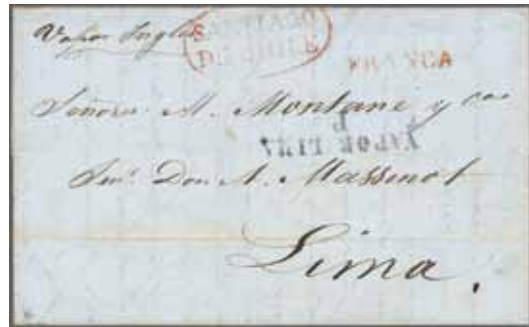 Vapor Ingles
SANTIAGO
DE CHILE
FRANCA
Señores M. Montane y Ca
P
VAPOR LIMA
Don A. Massenot
Lima.